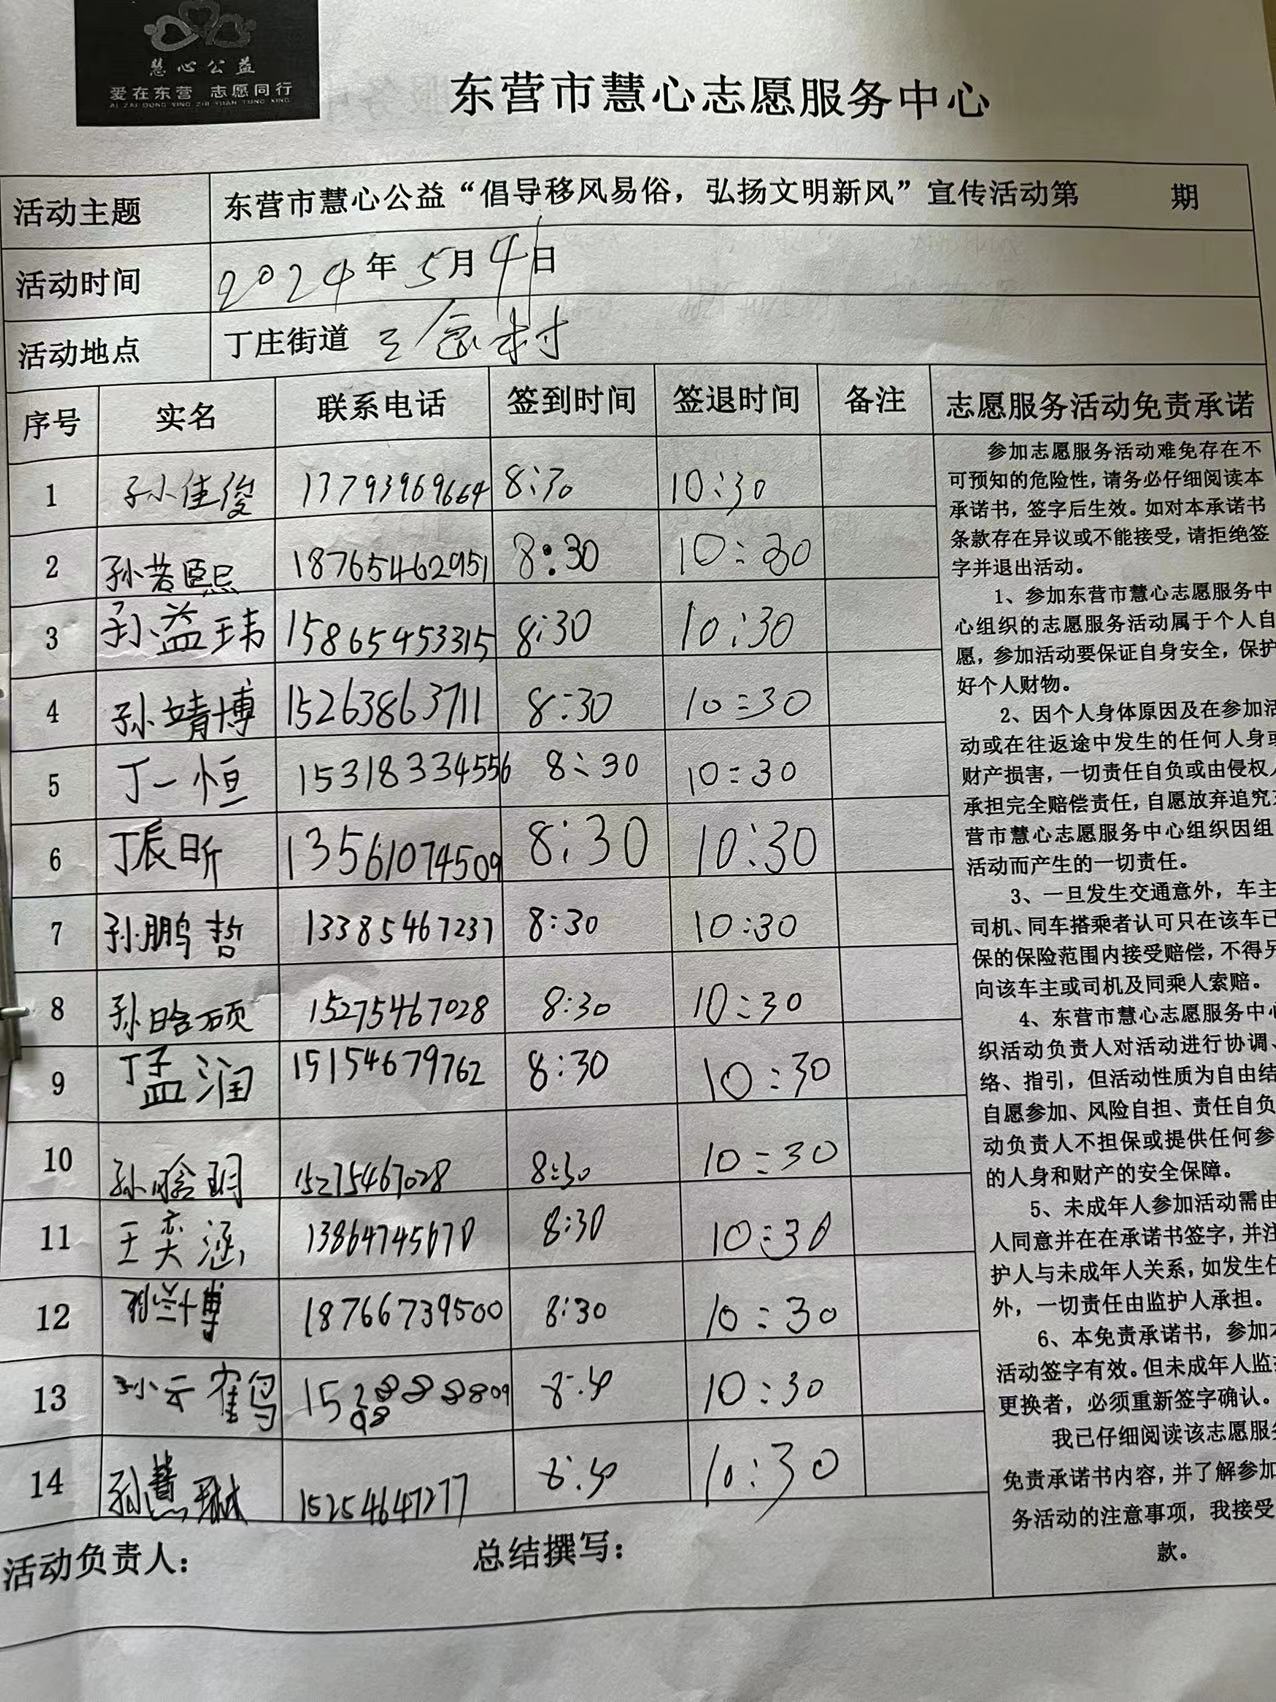 慧心公益
爱在东营 志愿同行
AI ZAI DONG YING ZHI YUAN TONG XING
东营市慧心志愿服务中心
活动主题 东营市慧心公益“倡导移风易俗，弘扬文明新风”宣传活动第 期
活动时间 2024年5月4日
活动地点 丁庄街道 村
序号 实名 联系电话 签到时间 签退时间 备注
1 孙佳俊 13793969664 8:30 10:30
2 孙若熙 18765462951 8:30 10:30
3 孙益玮 15865453315 8:30 10:30
4 孙靖博 15263863711 8:30 10:30
5 丁一恒 15318334556 8:30 10:30
6 丁辰昕 13561074509 8:30 10:30
7 孙鹏哲 13385467237 8:30 10:30
8 孙晗硕 15275467028 8:30 10:30
9 丁孟润 15154679762 8:30 10:30
10 孙晗玥 15275467028 8:30 10:30
11 王奕涵 13864745670 8:30 10:30
12 18766739500 8:30 10:30
13 孙云鹤 8:30 10:30
14 孙慧琳 15254647277 8:30 10:30
活动负责人： 总结撰写：
志愿服务活动免责承诺
参加志愿服务活动难免存在不
可预知的危险性，请务必仔细阅读本
承诺书，签字后生效。如对本承诺书
条款存在异议或不能接受，请拒绝签
字并退出活动。
1、参加东营市慧心志愿服务中
心组织的志愿服务活动属于个人自
愿，参加活动要保证自身安全，保护
好个人财物。
2、因个人身体原因及在参加活
动或在往返途中发生的任何人身或
财产损害，一切责任自负或由侵权人
承担完全赔偿责任，自愿放弃追究东
营市慧心志愿服务中心组织因组
活动而产生的一切责任。
3、一旦发生交通意外，车主
司机、同车搭乘者认可只在该车已
保的保险范围内接受赔偿，不得另
向该车主或司机及同乘人索赔。
4、东营市慧心志愿服务中心
织活动负责人对活动进行协调、
络、指引，但活动性质为自由结
自愿参加、风险自担、责任自负
动负责人不担保或提供任何参
的人身和财产的安全保障。
5、未成年人参加活动需由
人同意并在在承诺书签字，并注
护人与未成年人关系，如发生任
外，一切责任由监护人承担。
6、本免责承诺书，参加本
活动签字有效。但未成年人监
更换者，必须重新签字确认。
我已仔细阅读该志愿服务
免责承诺书内容，并了解参加
务活动的注意事项，我接受
款。